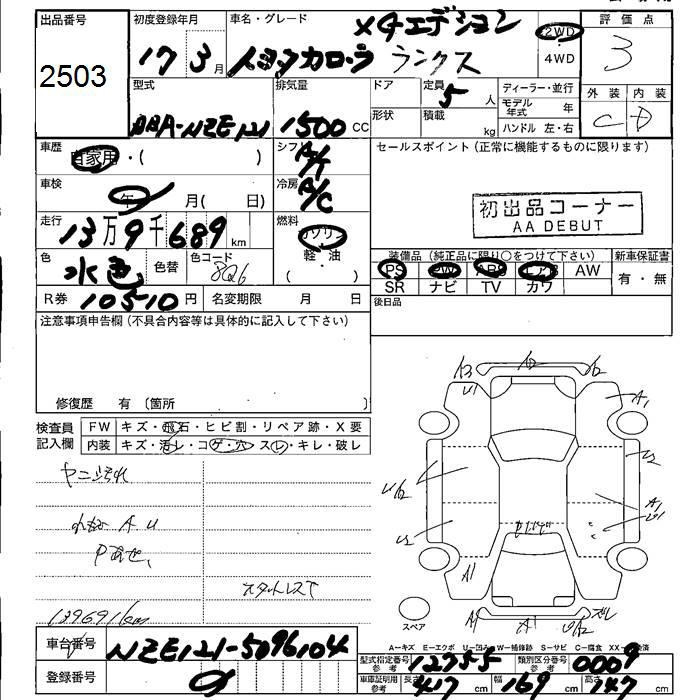 出品番号
2503
初度登録年月
17 3 月
車名・グレード
XGエディション
トヨタカローラ ランクス
2WD
4WD
評価点
3
外装 内装
C D
型式
DBA-NZE121
排気量
1500 CC
ドア
形状
定員
5 人
積載
kg
ディーラー・並行
モデル年式 年
ハンドル 左・右
車歴
自家用・( )
シフト
A/T
セールスポイント(正常に機能するものに限ります)
車検
年 月( 日)
冷房
A/C
初出品コーナー
AA DEBUT
走行
13万9千689 km
燃料
ガソリン
軽・油
( )
色
水色
色替
色コード
8Q6
装備品(純正品に限り○をつけて下さい)
新車保証書
PS PW ABS エアB AW
有・無
SR ナビ TV カワ
R券 10510円
名変期限 月 日
後日品
注意事項申告欄(不具合内容等は具体的に記入して下さい)
修復歴 有〔箇所 〕
検査員
記入欄
FW キズ・飛石・ヒビ割・リペア跡・X要
内装 キズ・汚レ・コゲ・穴 スレ・キレ・破レ
ヤニ汚れ
A U
スタットレスT
139691km
A3
U1
A2
A1
U2
A1
スペア
A1
ズレ
A-キズ E-エクボ U-凹み W-補修跡 S-サビ C-腐食 XX-交換済
車台番号
NZE121-5096104
登録番号
型式指定番号
参考
12755
類別区分番号
参考
0009
車庫証明用
参考
長さ 417 cm 幅 169 cm 高さ 147 cm